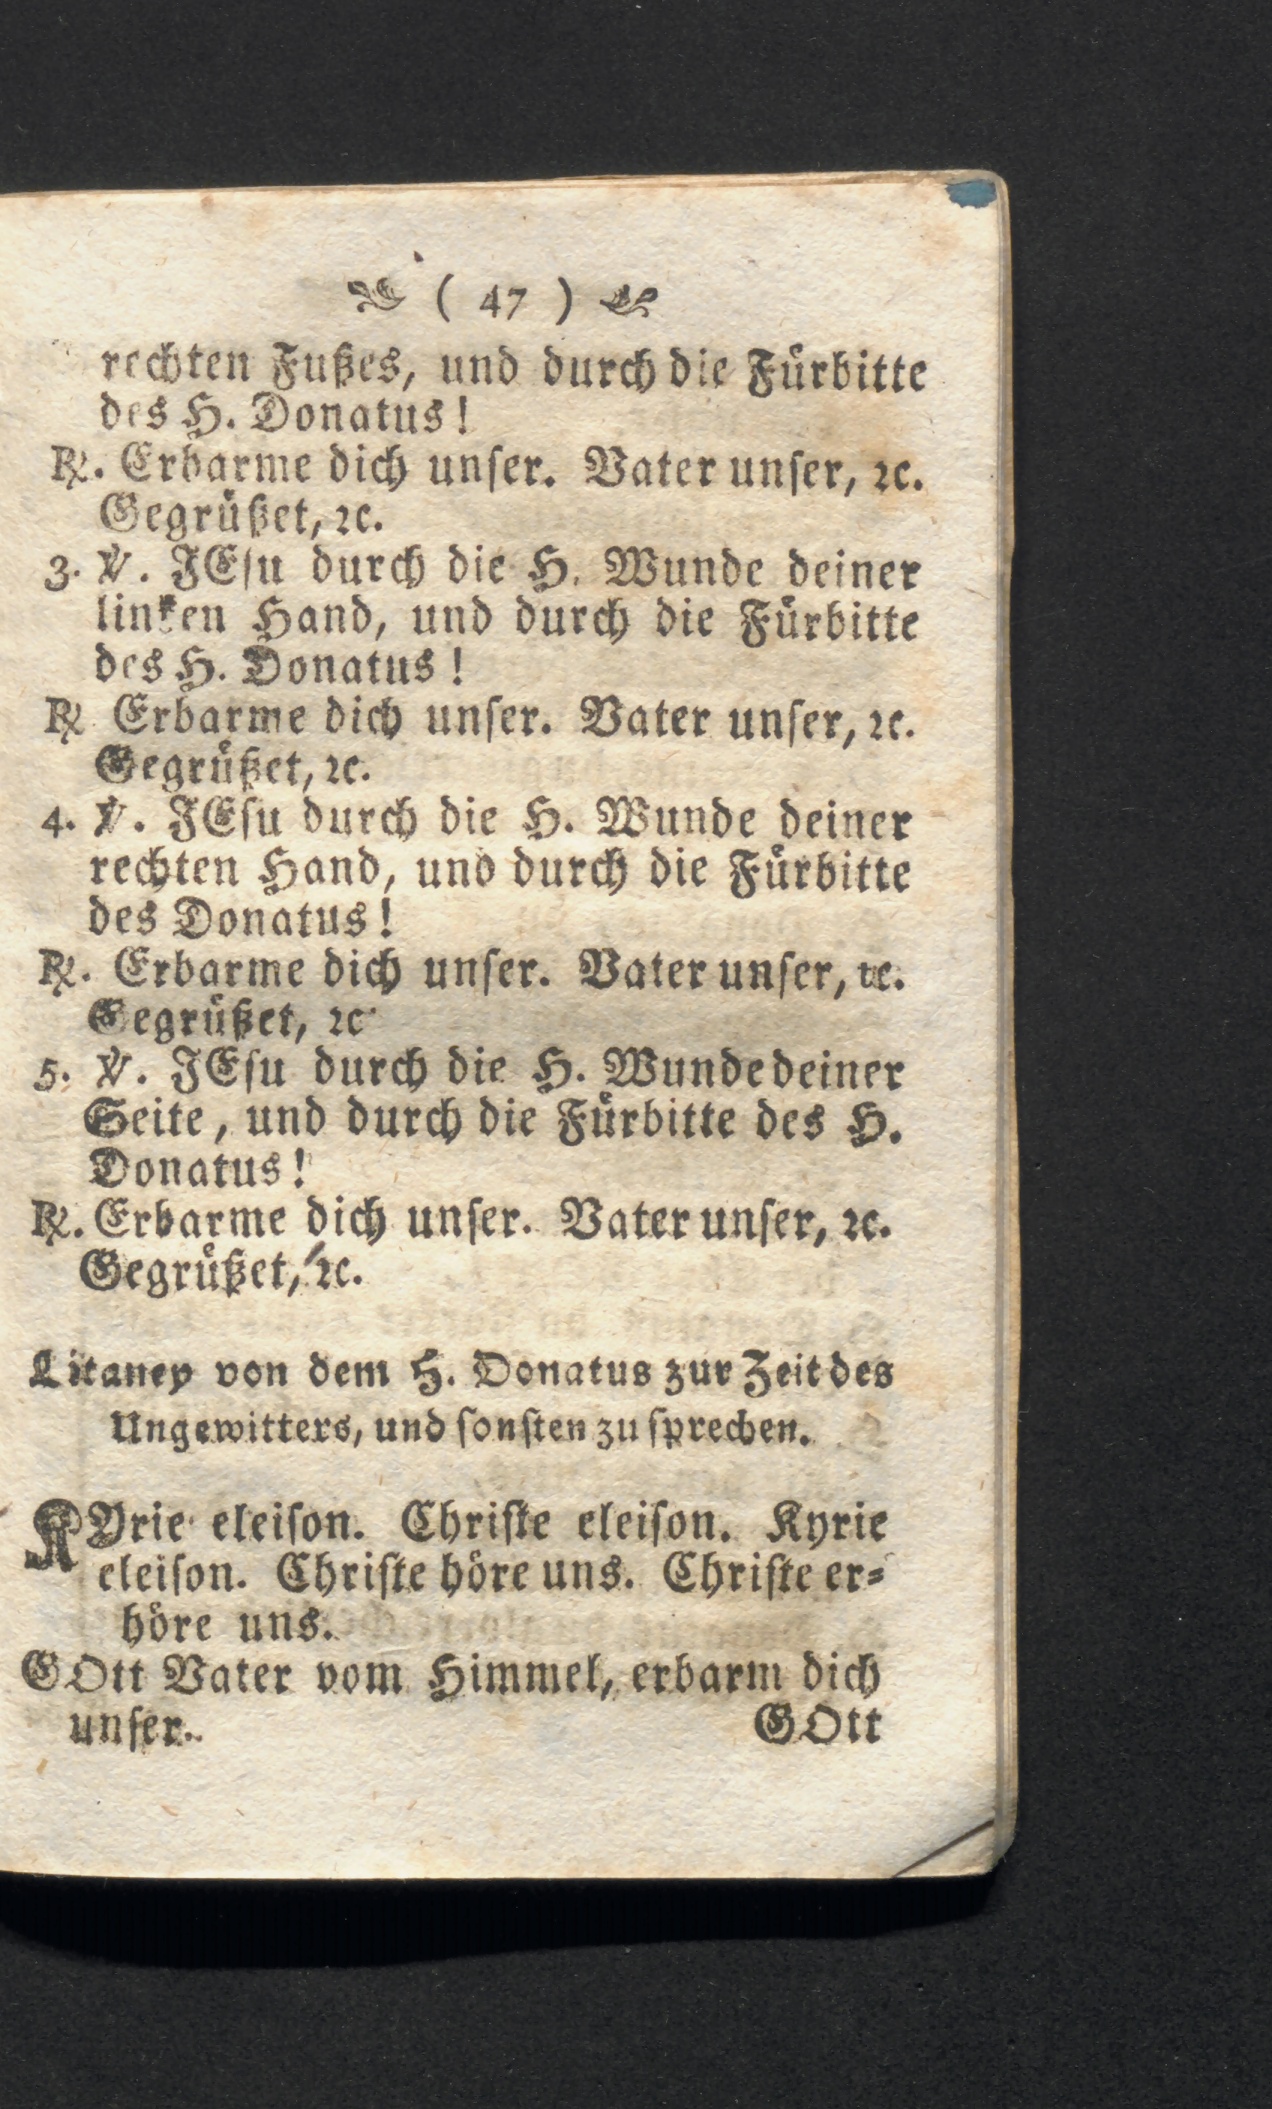 ( 47 )
rechten Fußes, und durch die Fürbitte
des H. Donatus!
℟. Erbarme dich unſer. Vater unſer, ꝛc.
Gegrüßet, ꝛc.
3. ℣. JEſu durch die H. Wunde deiner
linken Hand, und durch die Fürbitte
des H. Donatus!
℟ Erbarme dich unſer. Vater unſer, ꝛc.
Gegrüßet, ꝛc.
4. ℣. JEſu durch die H. Wunde deiner
rechten Hand, und durch die Fürbitte
des Donatus!
℟. Erbarme dich unſer. Vater unſer, ꝛc.
Gegrüßet, ꝛc.
5. ℣. JEſu durch die H. Wunde deiner
Seite, und durch die Fürbitte des H.
Donatus!
℟. Erbarme dich unſer. Vater unſer, ꝛc.
Gegrüßet, ꝛc.
Litaney von dem H. Donatus zur Zeit des
Ungewitters, und ſonſten zu ſprechen.
KYrie eleiſon. Chriſte eleiſon. Kyrie
eleiſon. Chriſte höre uns. Chriſte er⸗
höre uns.
GOtt Vater vom Himmel, erbarm dich
unſer. GOtt